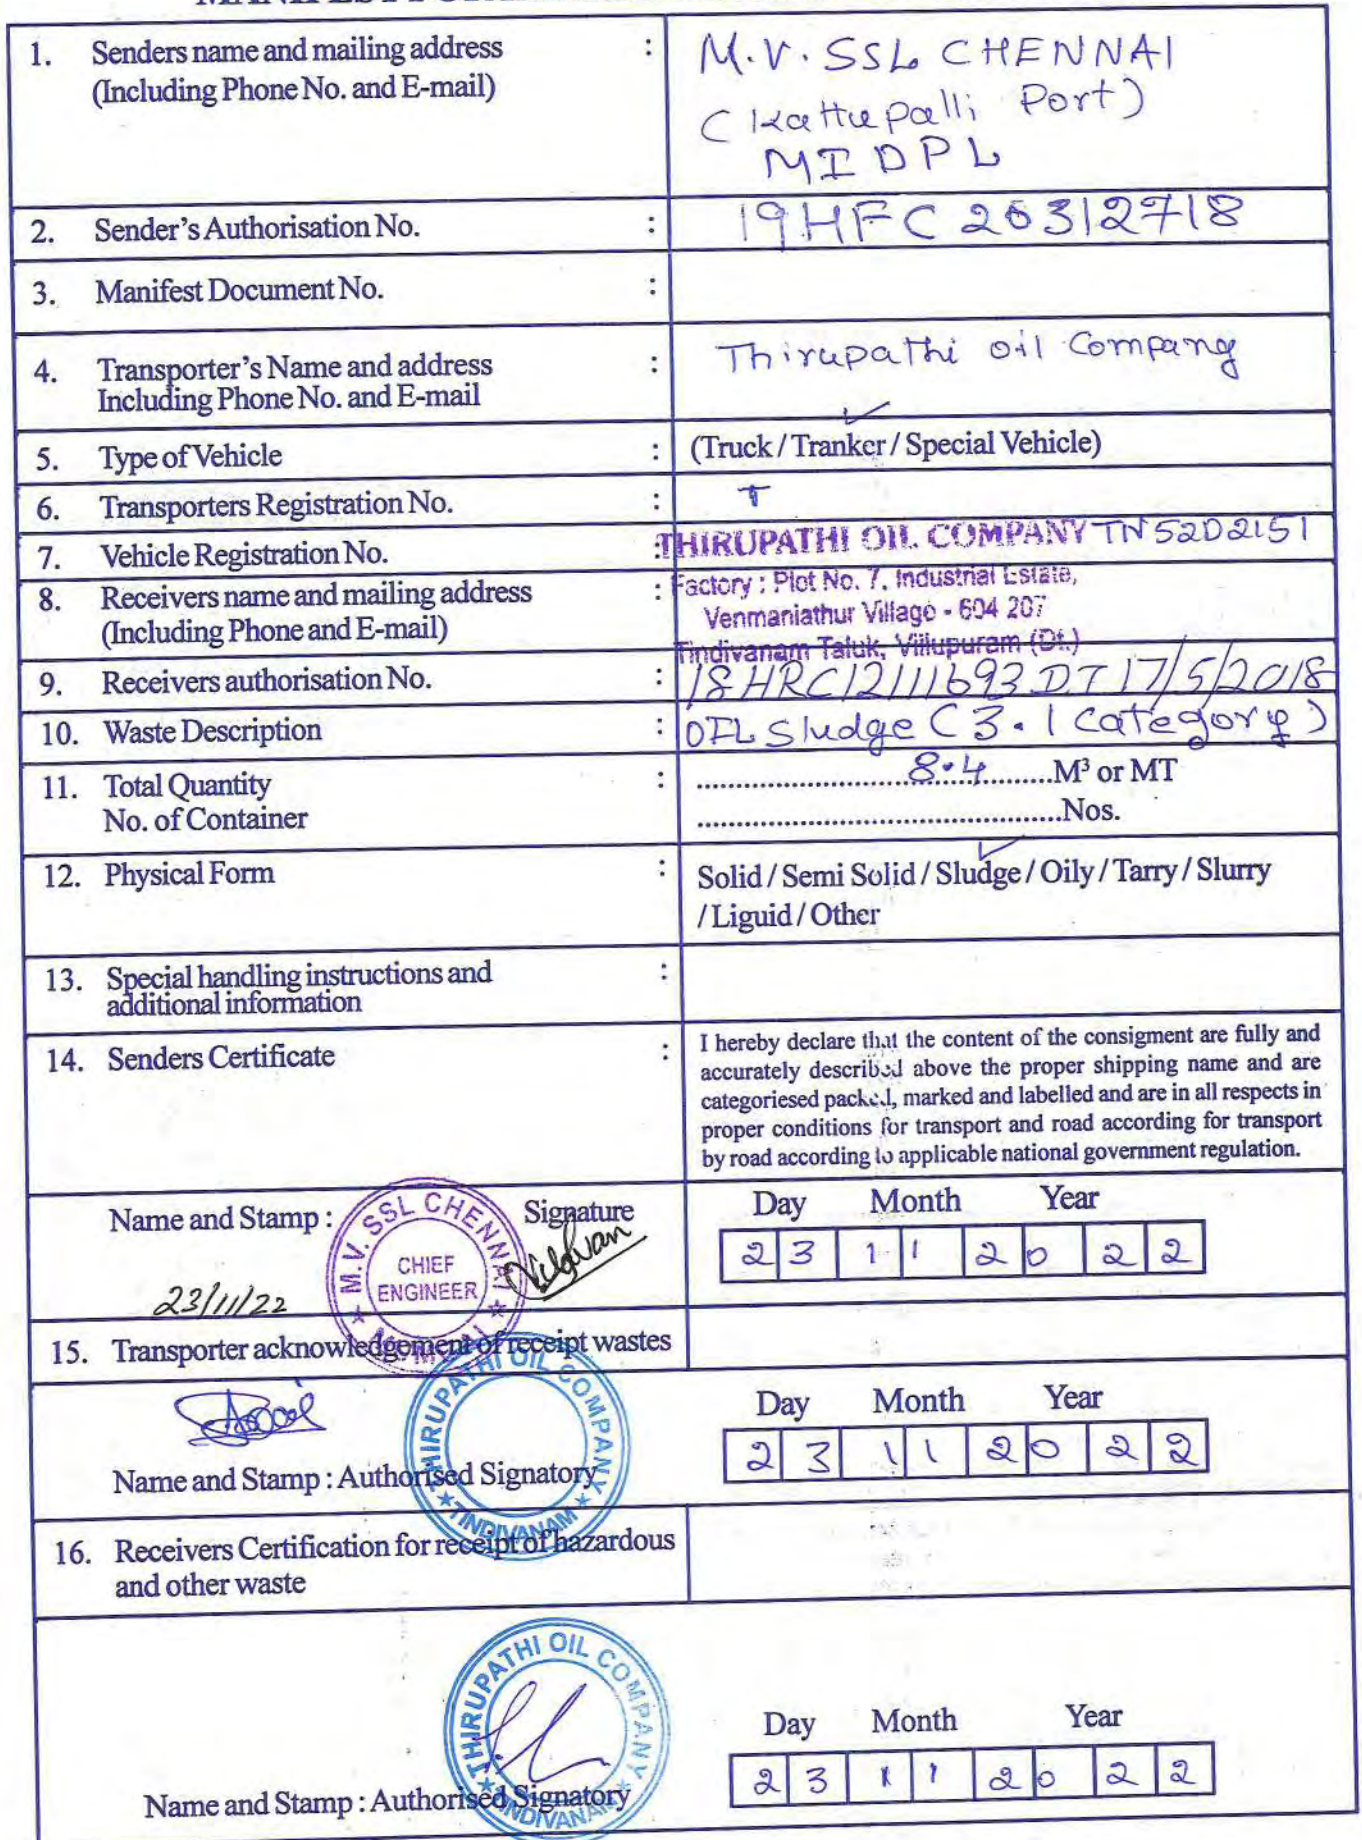 1. Senders name and mailing address : M.V. SSL CHENNAI
(Including Phone No. and E-mail) (Kattupalli Port)
MIDPL
2. Sender's Authorisation No. : 19HFC26312718
3. Manifest Document No. :
4. Transporter's Name and address : Thirupathi oil Company
Including Phone No. and E-mail
5. Type of Vehicle : (Truck / Tranker / Special Vehicle)
6. Transporters Registration No. : T
7. Vehicle Registration No. : THIRUPATHI OIL COMPANY TN52D2151
8. Receivers name and mailing address : Factory : Plot No. 7, Industrial Estate,
(Including Phone and E-mail) Venmaniathur Village - 604 207
Tindivanam Taluk, Villupuram (Dt.)
9. Receivers authorisation No. : 18HRC12111693 DT 17/5/2018
10. Waste Description : OIL Sludge (3.1 Category)
11. Total Quantity : ........................8.4.........M³ or MT
No. of Container ..........................................Nos.
12. Physical Form : Solid / Semi Solid / Sludge / Oily / Tarry / Slurry
/ Liguid / Other
13. Special handling instructions and :
additional information
14. Senders Certificate : I hereby declare that the content of the consigment are fully and
accurately described above the proper shipping name and are
categoriesed packed, marked and labelled and are in all respects in
proper conditions for transport and road according for transport
by road according to applicable national government regulation.
Name and Stamp : Signature Day Month Year
M.V. SSL CHENNAI
CHIEF
ENGINEER
MUMBAI
23 11 20 22
23/11/22
15. Transporter acknowledgement of receipt wastes
THIRUPATHI OIL COMPANY
TINDIVANAM
Day Month Year
23 11 20 22
Name and Stamp : Authorised Signatory
16. Receivers Certification for receipt of hazardous
and other waste
THIRUPATHI OIL COMPANY
TINDIVANAM
Day Month Year
23 11 20 22
Name and Stamp : Authorised Signatory